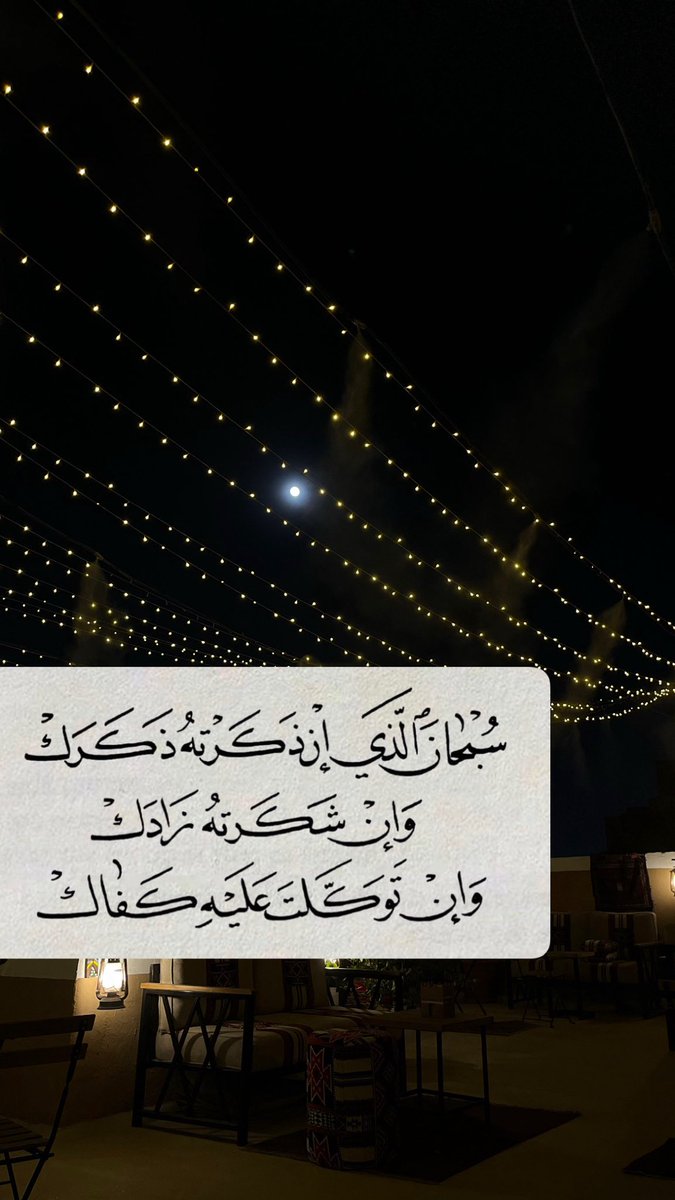 سُبْحَانَ ٱلَّذِي إِنْ ذَكَرْتهُ ذَكَرَكْ
وَإِنْ شَكَرتهُ زَادَكْ
وَإِنْ تَوَكَّلتَ عَلَيْهِ كَفَاكْ